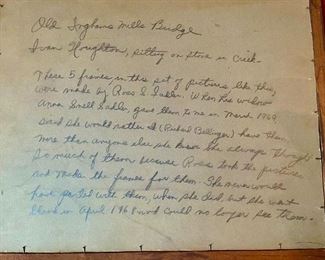 Old Inghams Mills Bridge
Ivan Houghton, sitting on stone in Creek.
These 5 frames in this set of pictures like this,
were made by Ross S. When his widow
Anna Snell gave them to me in March 1969,
said she would rather I (Richard Bellinger) have them
more than anyone else she knew. She always thought
so much of them because Ross took the pictures
and made the frames for them. She never would
have parted with them, when she did, but she went
blind in April 1968 and could no longer see them.